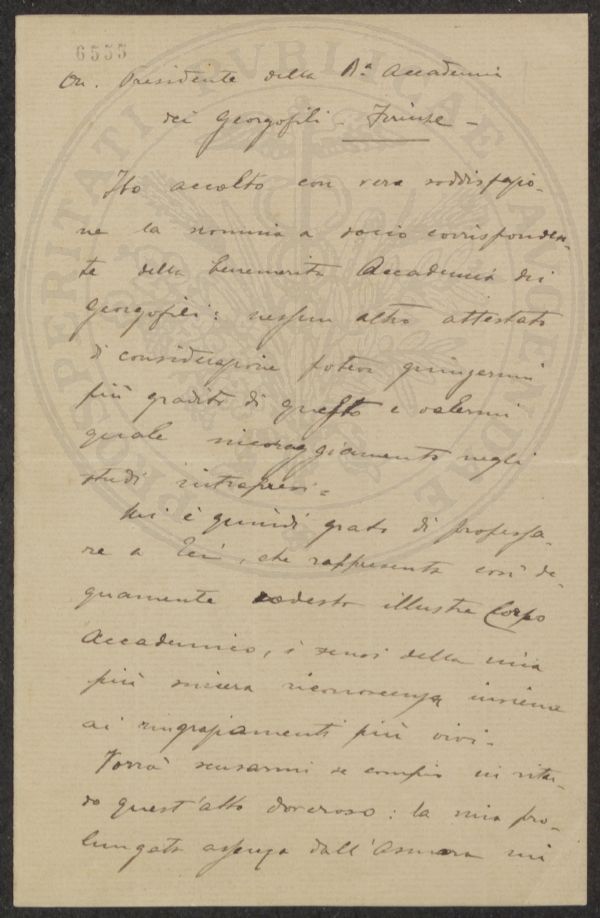 6555
On. Presidente della R.a Accademia
dei Georgofili - Firenze -
Ho accolto con vera soddisfazio-
ne la nomina a socio corrisponden-
te della benemerita Accademia dei
Georgofili: nessun altro attestato
di considerazione poteva giungermi
più gradito di questo e valermi
quale incoraggiamento negli
studi intrapresi.
Mi è quindi grato di professa-
re a Lei, che rappresenta così de-
gnamente codesto illustre Corpo
Accademico, i sensi della mia
più sincera riconoscenza insieme
ai ringraziamenti più vivi.
Vorrà scusarmi se compio in ritar-
do quest'atto doveroso: la mia pro-
lungata assenza dall'Asmara mi
PROSPERITATI PVBLICAE AVGENDAE